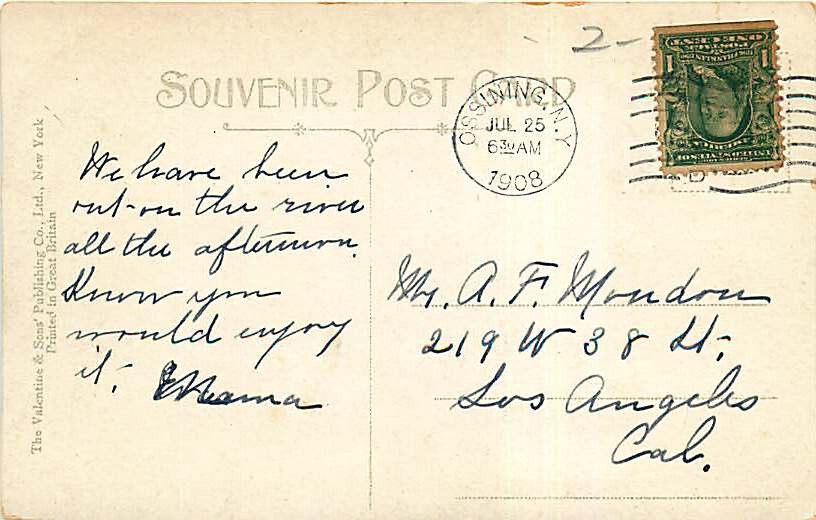 2-
SOUVENIR POST CARD
OSSINING, N.Y.
JUL 25
6 30 AM
1908
We have been
out on the river
all the afternoon.
Know you
would enjoy
it. Mama
Mr. A. F. Moudon
219 W 38 St.
Los Angeles
Cal.
The Valentine & Sons' Publishing Co., Ltd., New York
Printed in Great Britain
1 1
ONE CENT